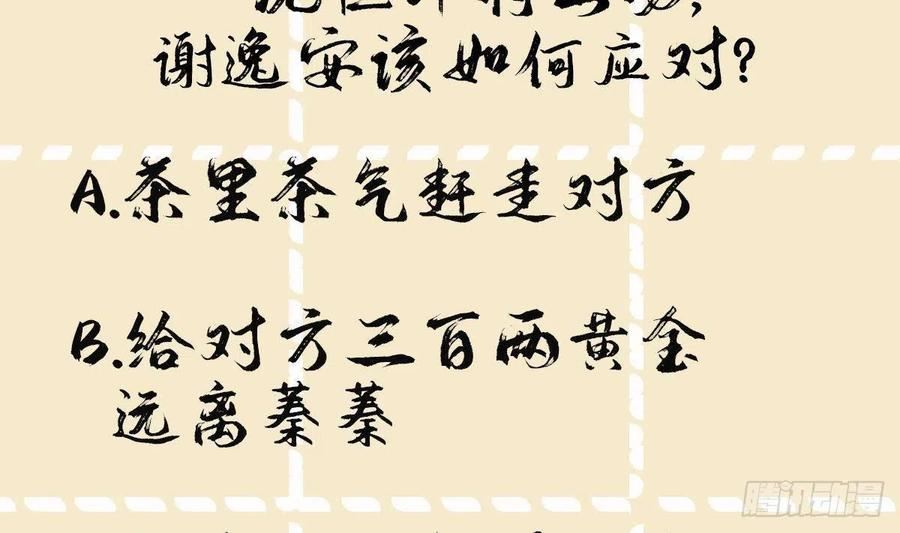 谢逸安该如何应对?
A.茶里茶气赶走对方
B.给对方三百两黄金
远离蓁蓁
腾讯动漫